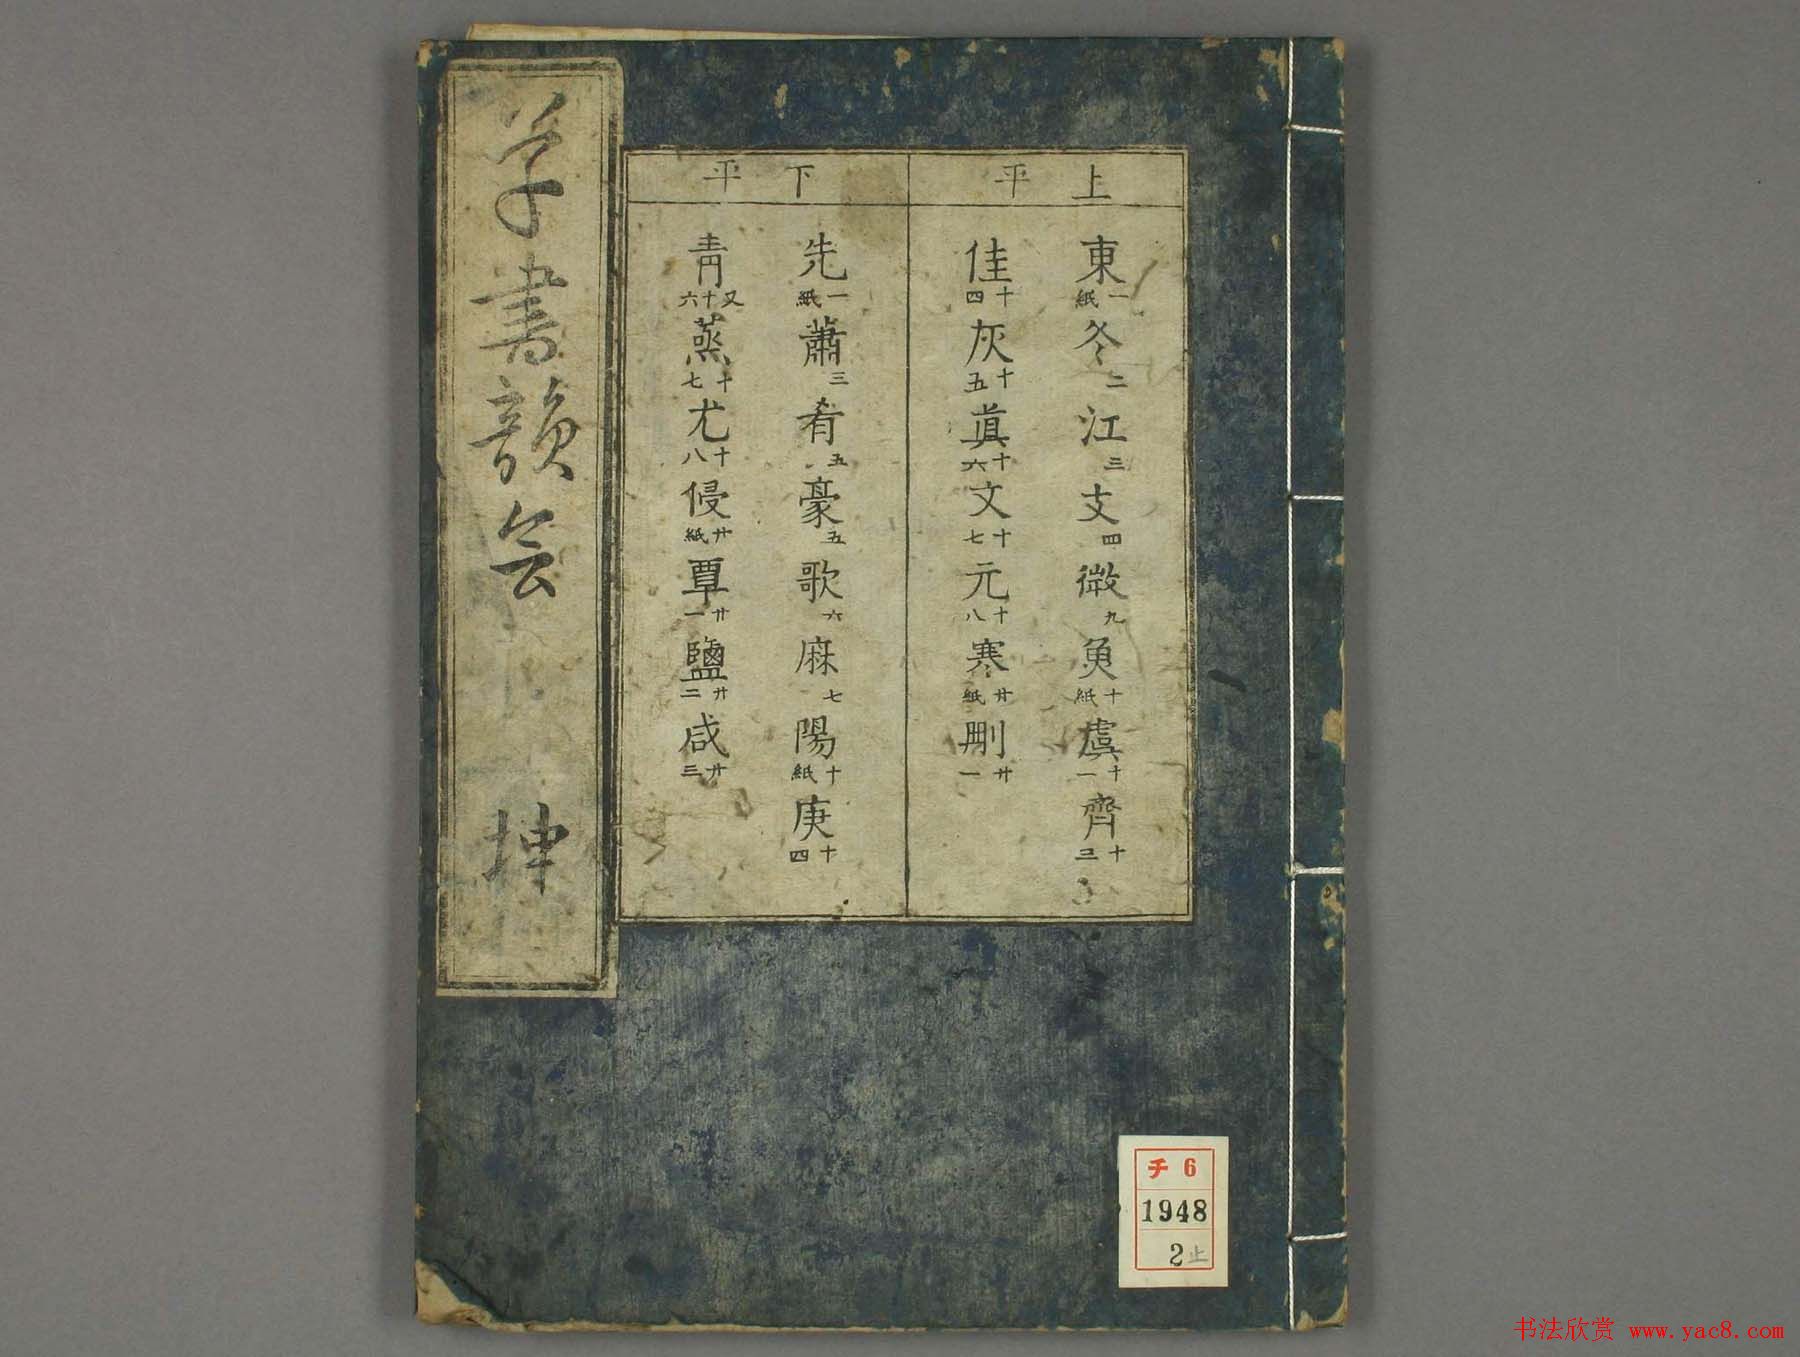 上平
東一紙冬二江三支四微九魚十紙虞十一齊十三
佳十四灰十五眞十六文十七元十八寒廿紙刪廿一
下平
先一紙蕭三肴五豪五歌六麻七陽十紙庚十四
青又十六蒸十七尤十八侵廿紙覃廿一鹽廿二咸廿三
草書韻会 坤
チ6
1948
2止
书法欣赏 www.yac8.com